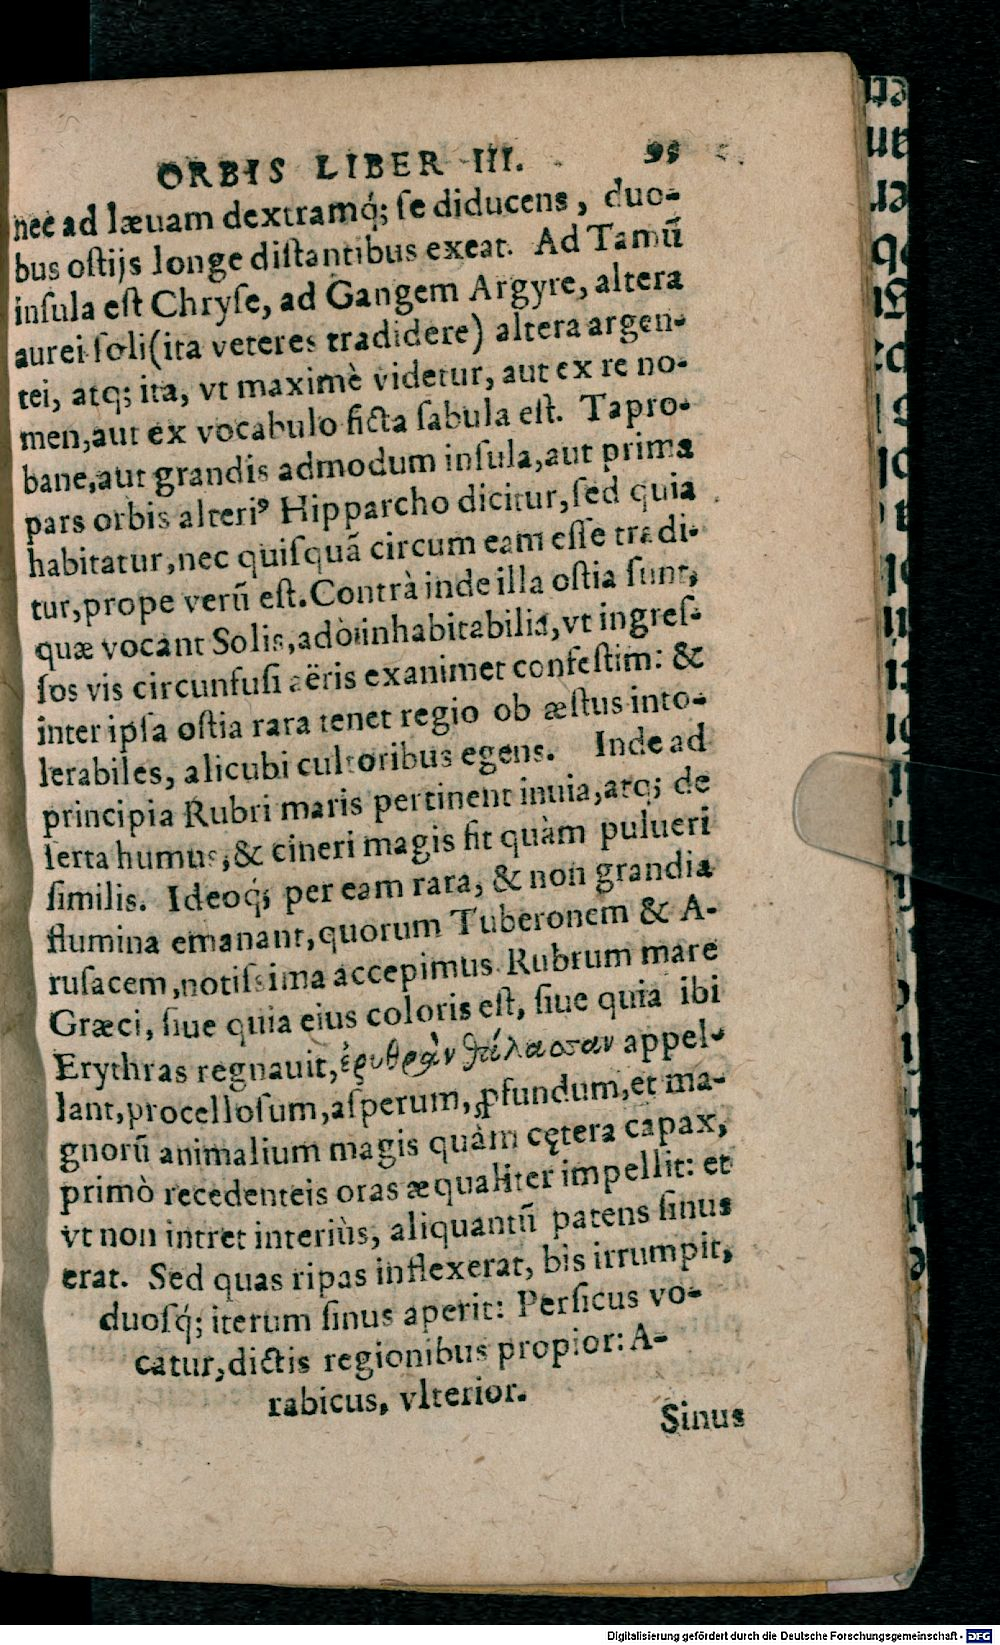 ORBIS LIBER III. 95
nec ad læuam dextramq́; ſe diducens, duo-
bus oſtijs longe diſtantibus exeat. Ad Tamū
inſula eſt Chryſe, ad Gangem Argyre, altera
aurei ſoli(ita veteres tradidere) altera argen-
tei, atq; ita, vt maximè videtur, aut ex re no-
men,aut ex vocabulo ficta fabula eſt. Tapro-
bane,aut grandis admodum inſula,aut prima
pars orbis alteriꝰ Hipparcho dicitur,ſed quia
habitatur,nec quiſquā circum eam eſſe tradi-
tur,prope verū eſt.Contrà inde illa oſtia ſunt,
quæ vocant Solis,adò inhabitabilia,vt ingreſ-
ſos vis circunfuſi aëris exanimet confeſtim: &
inter ipſa oſtia rara tenet regio ob æſtus into-
lerabiles, alicubi cultoribus egens. Inde ad
principia Rubri maris pertinent inuia,atq; de
ſerta humus,& cineri magis fit quàm pulueri
ſimilis. Ideoq́; per eam rara, & non grandia
flumina emanant,quorum Tuberonem & A-
ruſacem,notiſsima accepimus. Rubrum mare
Græci, ſiue quia eius coloris eſt, ſiue quia ibi
Erythras regnauit,ἐρυθρὰν θάλασσαν appel-
lant,procelloſum,aſperum,ꝓfundum,et ma-
gnorū animalium magis quàm cętera capax,
primò recedenteis oras æqualiter impellit: et
vt non intret interiùs, aliquantū patens ſinus
erat. Sed quas ripas inflexerat, bis irrumpit,
duoſq́; iterum ſinus aperit: Perſicus vo-
catur,dictis regionibus propior: A-
rabicus, vlterior.
Sinus
Digitalisierung gefördert durch die Deutsche Forschungsgemeinschaft - DFG